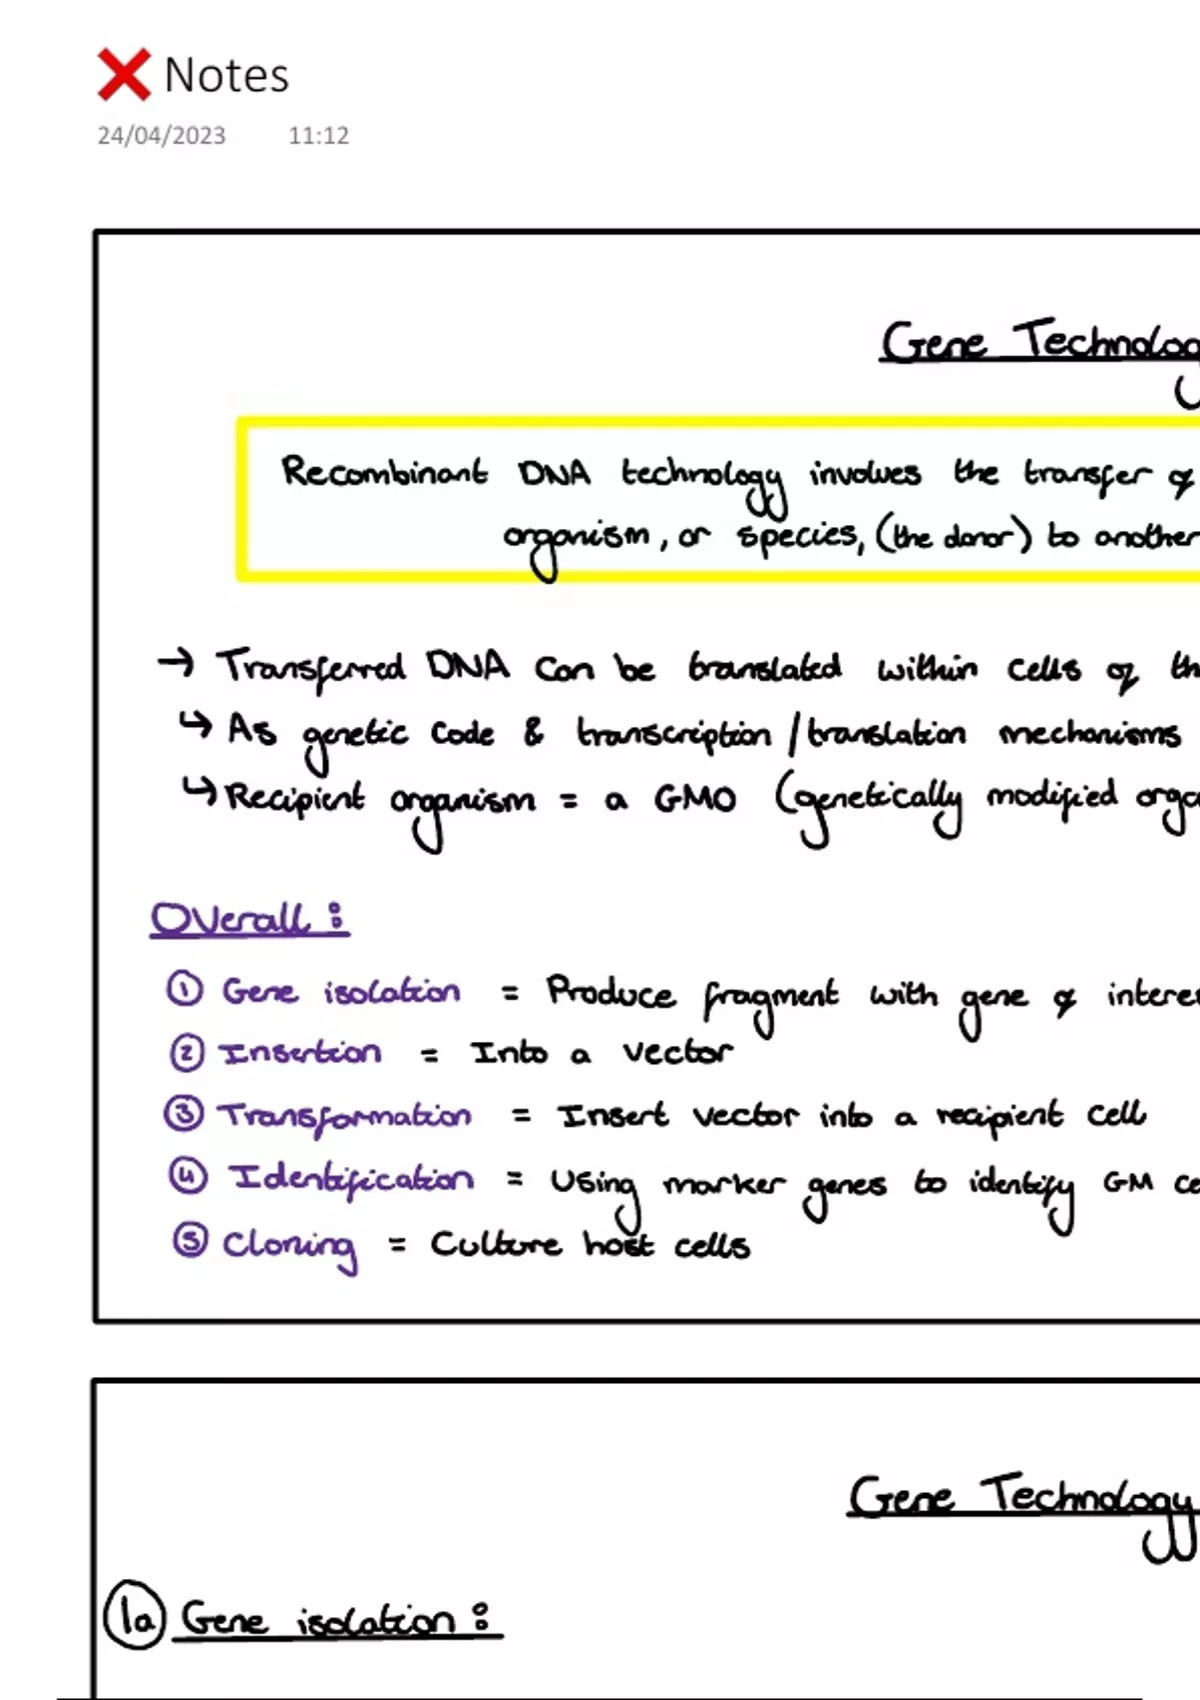 ❌ Notes
24/04/2023 11:12
Gene Technolog
Recombinant DNA technology involves the transfer of
organism, or species, (the donor) to another
→ Transferred DNA can be translated within cells of th
↳ As genetic code & transcription / translation mechanisms
↳ Recipient organism = a GMO (genetically modified orga
Overall :
① Gene isolation = Produce fragment with gene of interes
② Insertion = Into a vector
③ Transformation = Insert vector into a recipient cell
④ Identification = Using marker genes to identify GM ce
⑤ Cloning = Culture host cells
Gene Technology
1a Gene isolation :